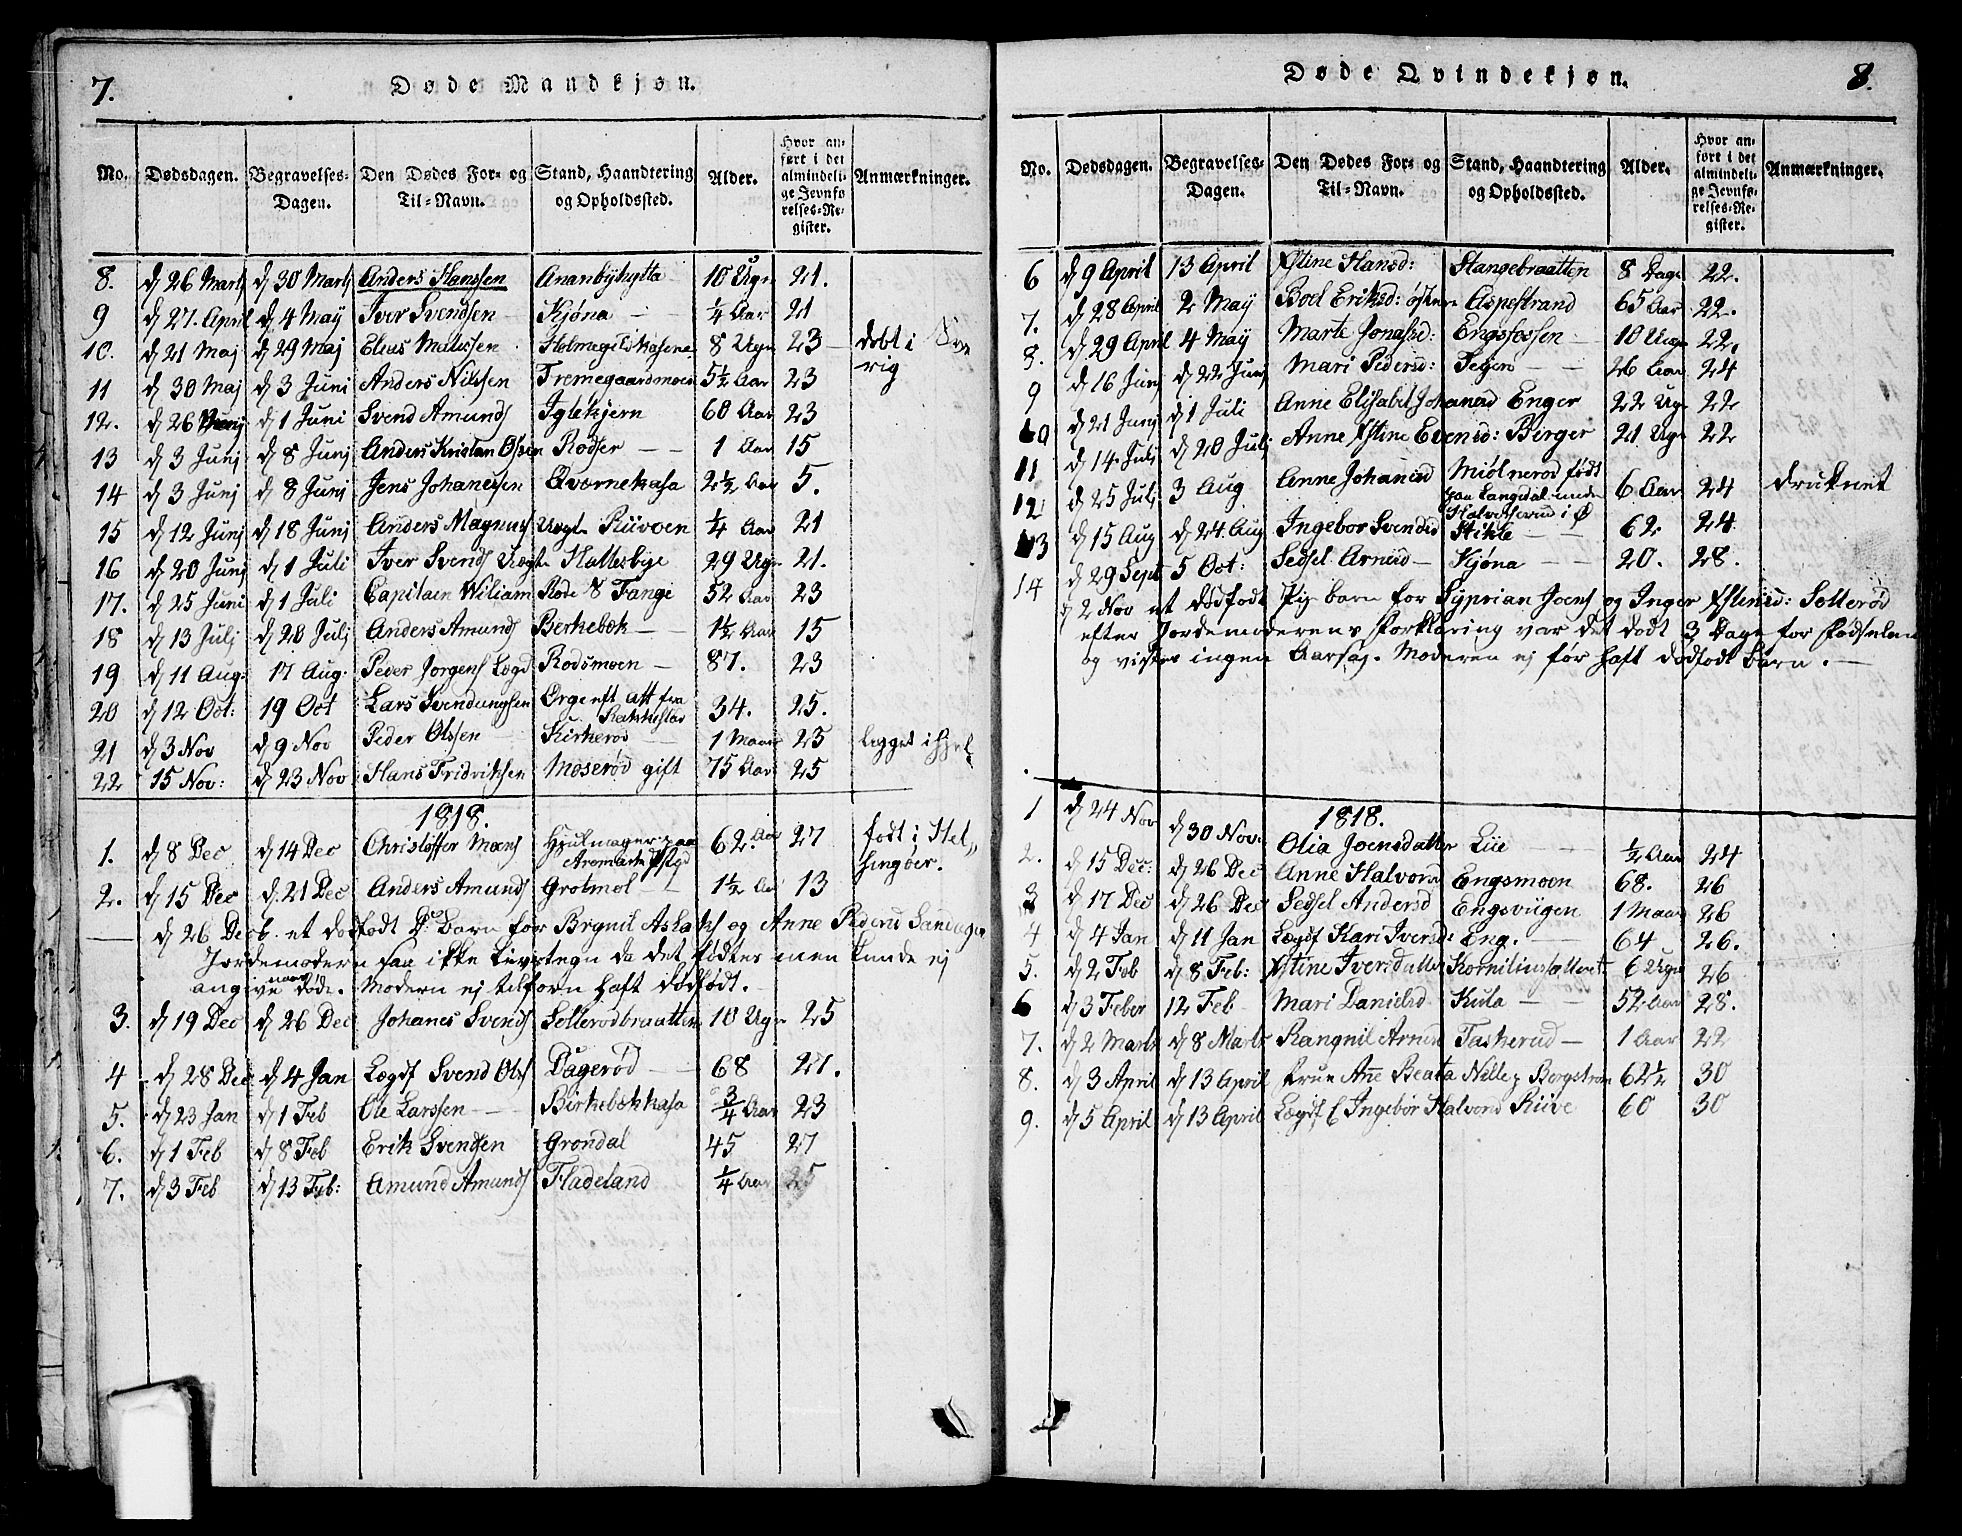 7.
Døde Mandkjøn.
No.
Dødsdagen.
Begravelses-Dagen.
Den Dødes For- og Til-Navn.
Stand, Haandtering og Opholdssted.
Alder.
Hvor anført i det almindelige Jevnførelses-Register.
Anmærkninger.
8. d 26 Marts d 30 Marts Anders Hanssen Ananbyhytta 10 Ugr 21.
9 d 27. April d 4 May Iver Svendsen Kjøna 1/4 Aar 21
10. d 21 Maj d 29 Maj Elias 8 Ugr 23 døbt i Sve
rig
11 d 30 Maj d 3 Juni Anders Nilssen Tremegaardsmoen 5 1/2 Aar 23
12. d 26 d 1 Juni Svend Amunds Iglekjern 60 Aar 23
13 d 3 Junj d 8 Junj Anders Kristian Olsen Rødser 1 Aar 15
14 d 3 Junj d 8 Junj Jens Johanessen Qværnekasa 2 1/2 Aar 5.
15 d 12 Junj d 18 Junj Anders Magnus Uægte Riivøen 1/4 Aar 21
16 d 20 Junj d 1 Juli Iver Svends Uægte Hallesbye 29 Ugr 21.
17. d 25 Juni d 1 Juli Capitaen Wiliam Rode S Tange 52 Aar 23
18 d 13 Julj d 20 Julj Anders Amunds Berkebøk 1 1/2 Aar 15
19 d 11 Aug: 17 Aug. Peder Jørgens Lægd Rødsmoen 87. 23
20 d 12 Oct: 19 Oct Lars Svendungsen Ørge eft att fra
Rakkestad 34. 25.
21 d 3 Nov d 9 Nov Peder Olssen Kirkerød 1 Maan 23
22 15 Nov: d 23 Nov Hans Fridriksen Moserød gift 75 Aar 25
1818.
1. d 8 Dec d 14 Dec Christoffer Moens Hjulmager paa
Aremark 62. Aar 27 født i Hel,,
singøer.
2. d 15 Dec d. 21 Dec Anders Amunds Grotmol 1 1/2 Aar 13
d 26 Decb. et dødfødt D. Barn for Brynil Aslaks og Anne Pedersd
Jordemodern saa ikke Livstegn da det fødtes men kunde ej
angive naar døde. Modern ej tilforn haft dødfødt.
3. d 19 Dec d 26 Dec Johanes Svends Sollerødbraatten 10 Ugr 25
4 d 28 Dec d 4 Jan Lægds Svend Ols Dagerød 68 27.
5. d 23 Jan d 1 Feb Ole Larssen Birkebøkkasa 3/4 Aar 23
6. d 1 Feb d 8 Feb Erik Svendsen Grøndal 45 27
7. d 3 Feb d 13 Feb: Amund Amunds Fladeland 1/4 Aar 25
Døde Qvindekjøn.
8.
No.
Dødsdagen.
Begravelses-Dagen.
Den Dødes For- og Til-Navn.
Stand, Haandtering og Opholdssted.
Alder.
Hvor anført i det almindelige Jevnførelses-Register.
Anmærkninger.
6 d 9 April 13 April Stine Hansd: Stangebraatten 8 Dage 22.
7. d 28 April 2 May Boel Eriksd: Aspestrand 65 Aar 22.
8. d 29 April 4 May Marte Jonasd: Engsfossen 10 Ugr 22.
9 d 16 Junj d 22 Junj Mari Pedersd: 26 Aar 24
10 d 21 Junj d 1 Juli Anne Elisabet Johansd Enger 22 Ugr 22
11 d 14 Juli d 20 Juli Anne Stine Evensd: Børger 21 Ugr 22
12 d 25 Juli 3 Aug Anne Johansd Miølnerød født
paa Langsdal 6 Aar 24 druknet
13 d 15 Aug d 24. Aug Ingebor Svendsd Hikle 62. 24.
14 d 29 Sept 5 Oct: Sedsel Arnesd Kjøna 20. 28.
d 2 Nov et dødfødt Pig barn for Syprian Joens og Inger Sollerød
efter Jordemoderens forklaring var det dødt 3 Dage for fødselen
og vistes ingen Aarsag. Moderen ej før haft dødfødt barn.
1818.
1 d 24 Nov d 30 Nov: Olia Joensdatter Liie 1/2 Aar 24
2. d 15 Dec: d 26 Dec Anne Halvorsd Engsmoen 68. 26
3 d 17 Dec d 26 Dec Sedsel Andersd Engsviigen 1 Maan 26
4 d 4 Jan d 11 Jan Lægdsl Kari Iversd: Eng. 64 26.
5. d 2 Feb d 8 Feb: Stine Iversdatter 6 Ugr 26
6 d 3 Feber 12 Feb Mari Danielsd Kula 52 Aar 28.
7. d 2 Marts d 8 Marts Rangnil Arnesd Taskerud 1 Aar 22
8. d 3 April d 13 April Frue Ane Beata Nille Bergstrøm 62 1/2 30
9. d 5 April d 13 April Lægdsl Ingebør Halvorsd Riive 60 30